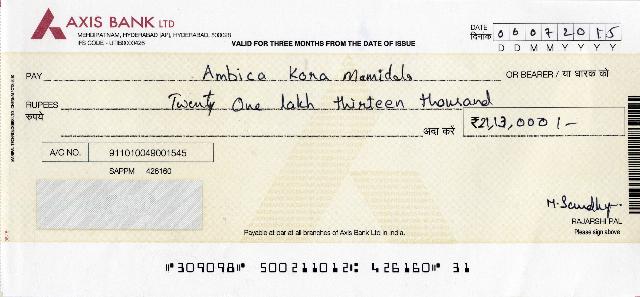 AXIS BANK LTD
MEHDIPATNAM, HYDERABAD [AP], HYDERABAD, 500028
IFS CODE - UTIB0000426
VALID FOR THREE MONTHS FROM THE DATE OF ISSUE
DATE
दिनांक 00072015
D D M M Y Y Y Y
PAY Ambica Kora Mamidala OR BEARER / या धारक को
RUPEES Twenty One lakh thirteen thousand
रुपये
अदा करें ₹21,13,000/-
A/C NO. 911010049001545
SAPPM 426160
M. Sandhya
RAJARSHI PAL
Please sign above
Payable at par at all branches of Axis Bank Ltd in India.
⑈309098⑈ 500211012⑆ 426160⑈ 31